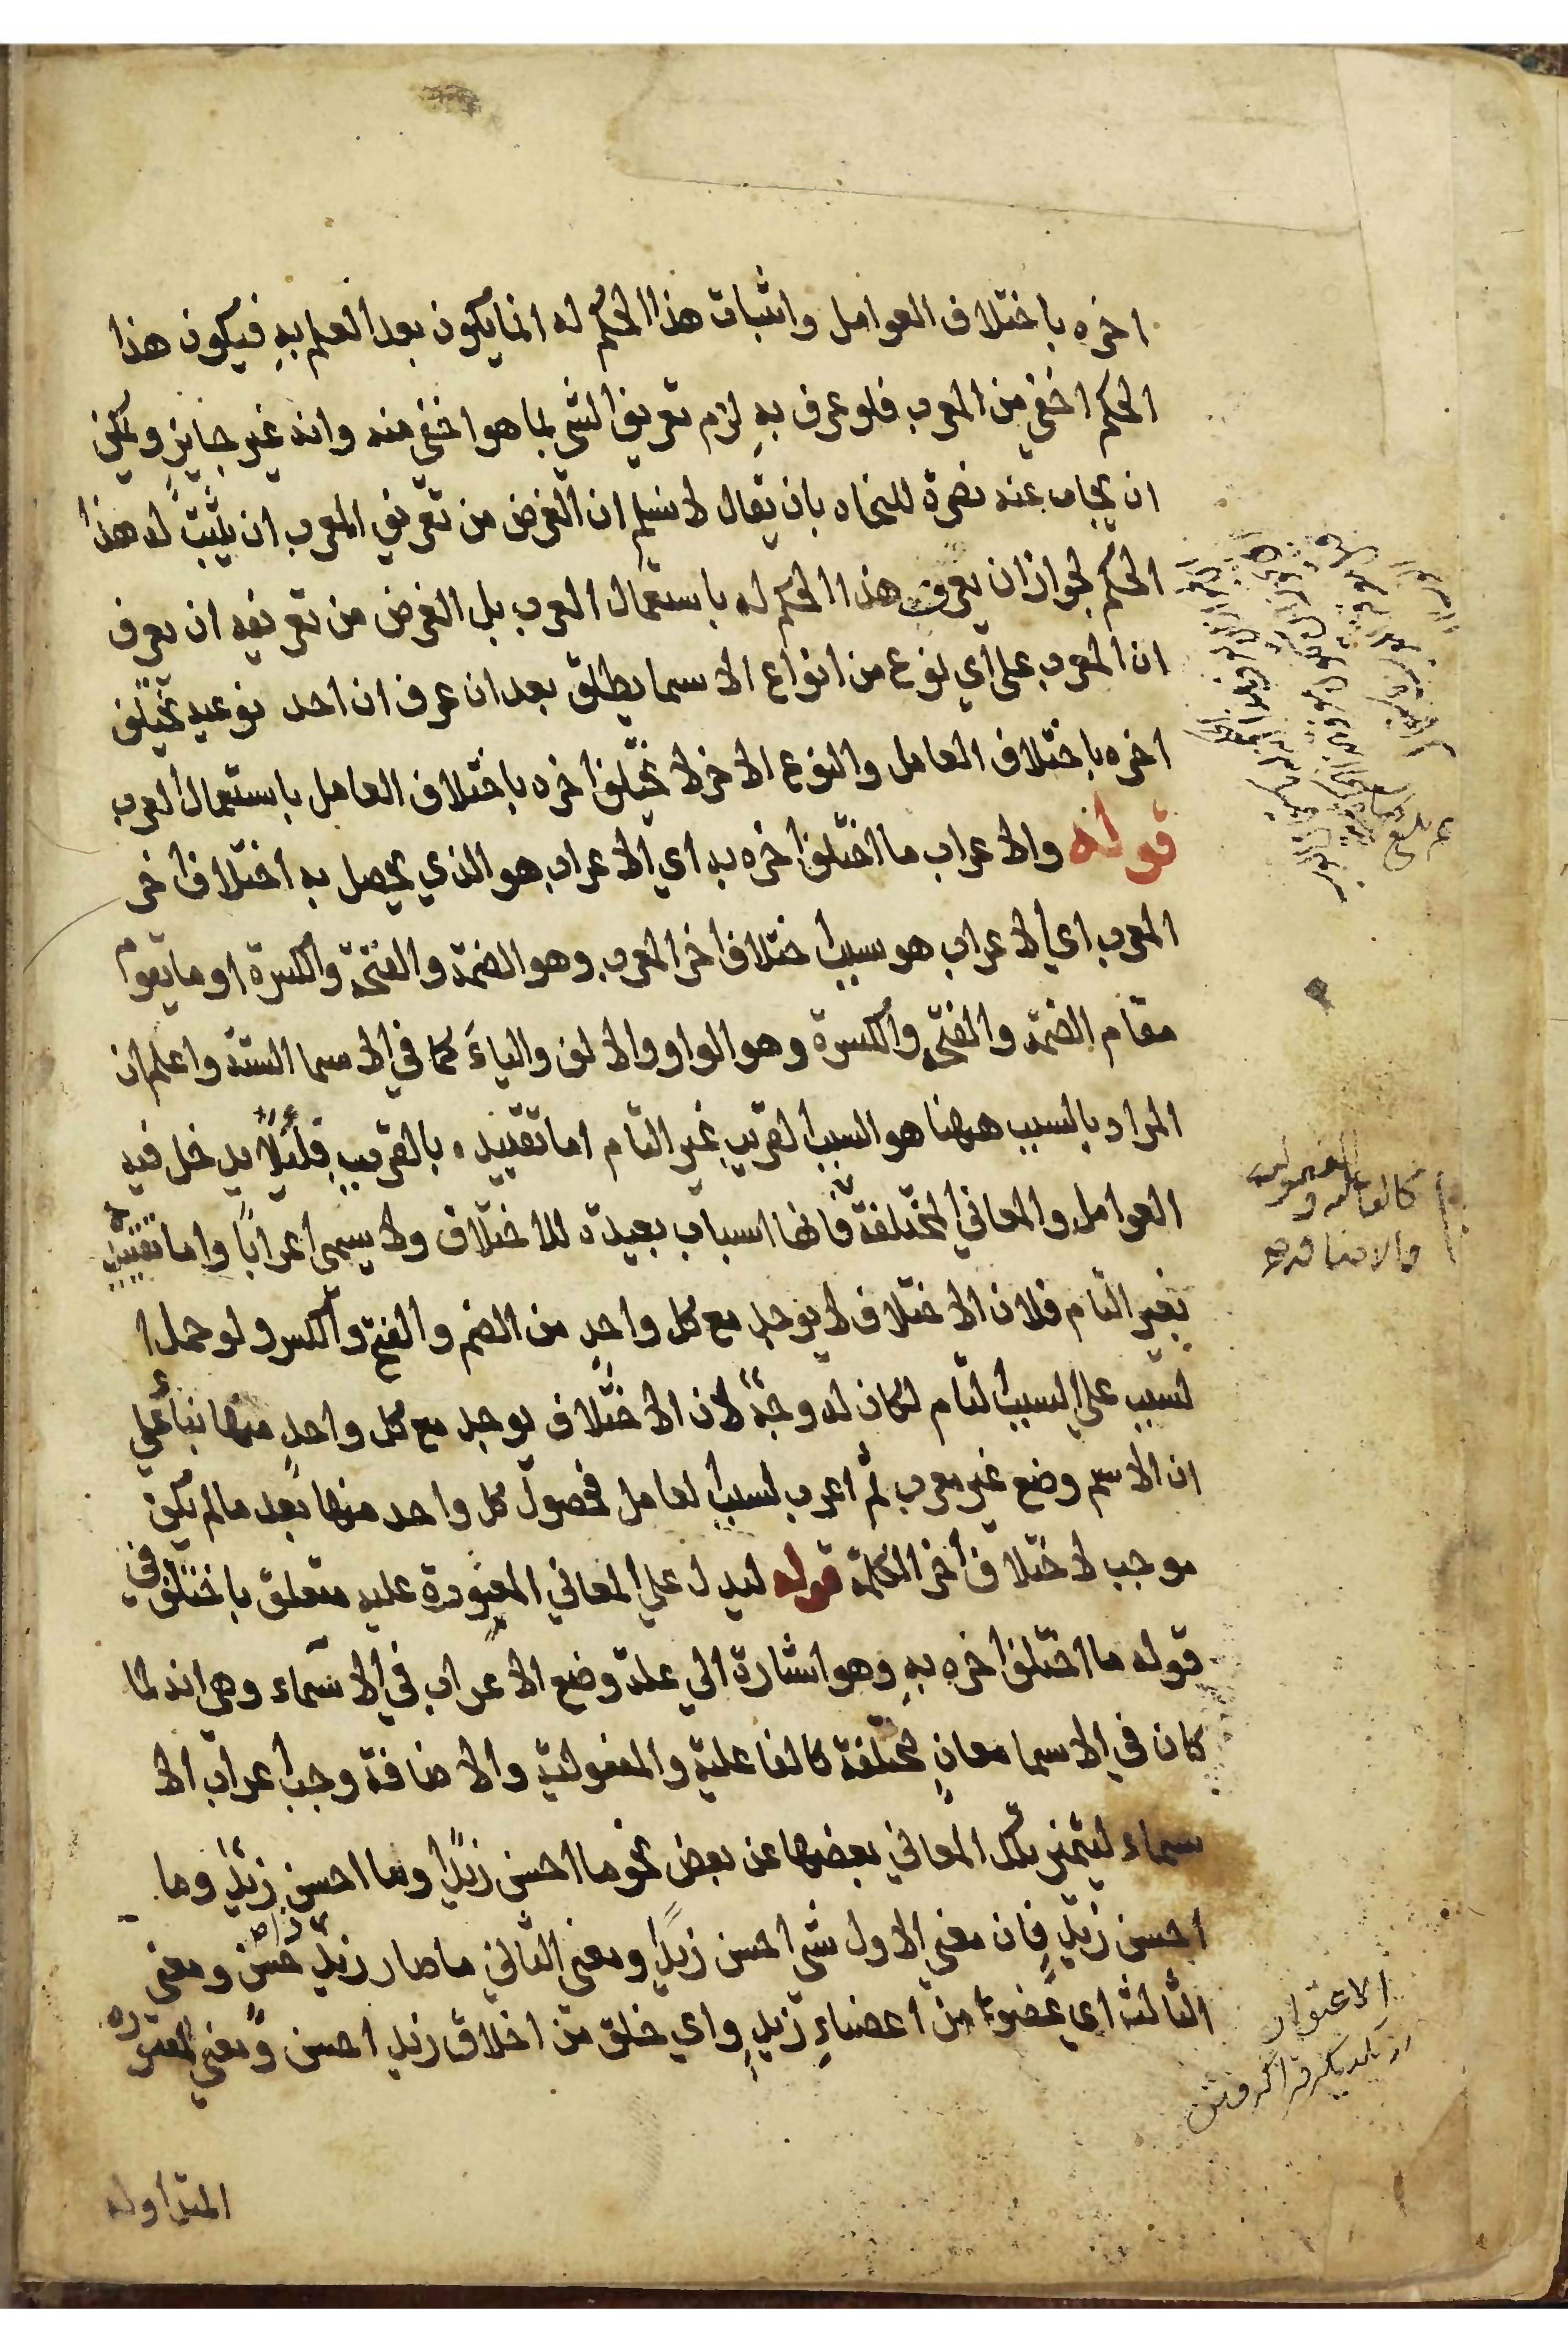 اخره باختلاف العوامل واثبات هذا الحكم له انما يكون بعد العلم به فيكون هذا
الحكم اخفي من المعرب فلو عرف به لزم تعريف الشي بما هو اخفي منه وانه غير جايز ويمكن
ان يجاب عنه نصرة للنحاه بان يقال لا نسلم ان الغرض من تعريف المعرب ان يثبت له هذا
الحكم لجواز ان يعرف هذا الحكم له باستعمال العرب بل الغرض من تعريفه ان يعرف
ان المعرب علي اي نوع من انواع الاسما يطلق بعد ان عرف ان احد نوعيه يختلف
اخره باختلاف العامل والنوع الاخر لا يختلف اخره باختلاف العامل باستعمال العرب
قوله والاعراب ما اختلف اخره به اي الاعراب هو الذي يحصل به اختلاف اخر
المعرب اي الاعراب هو سبب اختلاف اخر المعرب وهو الضمة والفتحة والكسرة او ما يقوم
مقام الضمة والفتحة والكسرة وهو الواو والالف والياء كما في الاسما الستة واعلم ان
المراد بالسبب ههنا هو السبب القريب غير التام اما تقييده بالقريب فلئلا يدخل فيه
العوامل والمعاني المختلفة فانها اسباب بعيدة للاختلاف ولا يسمي اعرابا واما تقييده
بغير التام فلان الاختلاف لا يوجد مع كل واحد من الضم والفتح والكسر ولو حمل ا
لسبب علي السبب التام لكان له وجه لان الاختلاف يوجد مع كل واحد منها بناء علي
ان الاسم وضع غير معرب ثم اعرب لسبب العامل فحصول كل واحد منها بعد ما لم يكن
موجب لاختلاف اخر الكلمة قوله ليدل علي المعاني المعتورة عليه متعلق باختلف في
قوله ما اختلف اخره به وهو اشارة الي علة وضع الاعراب في الاسماء وهي انه لما
كان في الاسما معان مختلفة كالفاعلية والمفعولية والاضافة وجب اعراب الا
سماء ليتميز بكل المعاني بعضها عن بعض نحو ما احسن زيدا وما احسن زيد وما
احسن زيد فان معني الاول شي احسن زيدا ومعني الثاني ما صار زيد ذا حسن ومعني
الثالث اي عضو من اعضاء زيد واي خلق من اخلاق زيد احسن ومعني المعتورة
المتداولة
كالفاعلية والمفعولية
والاضافة
الاعتوار